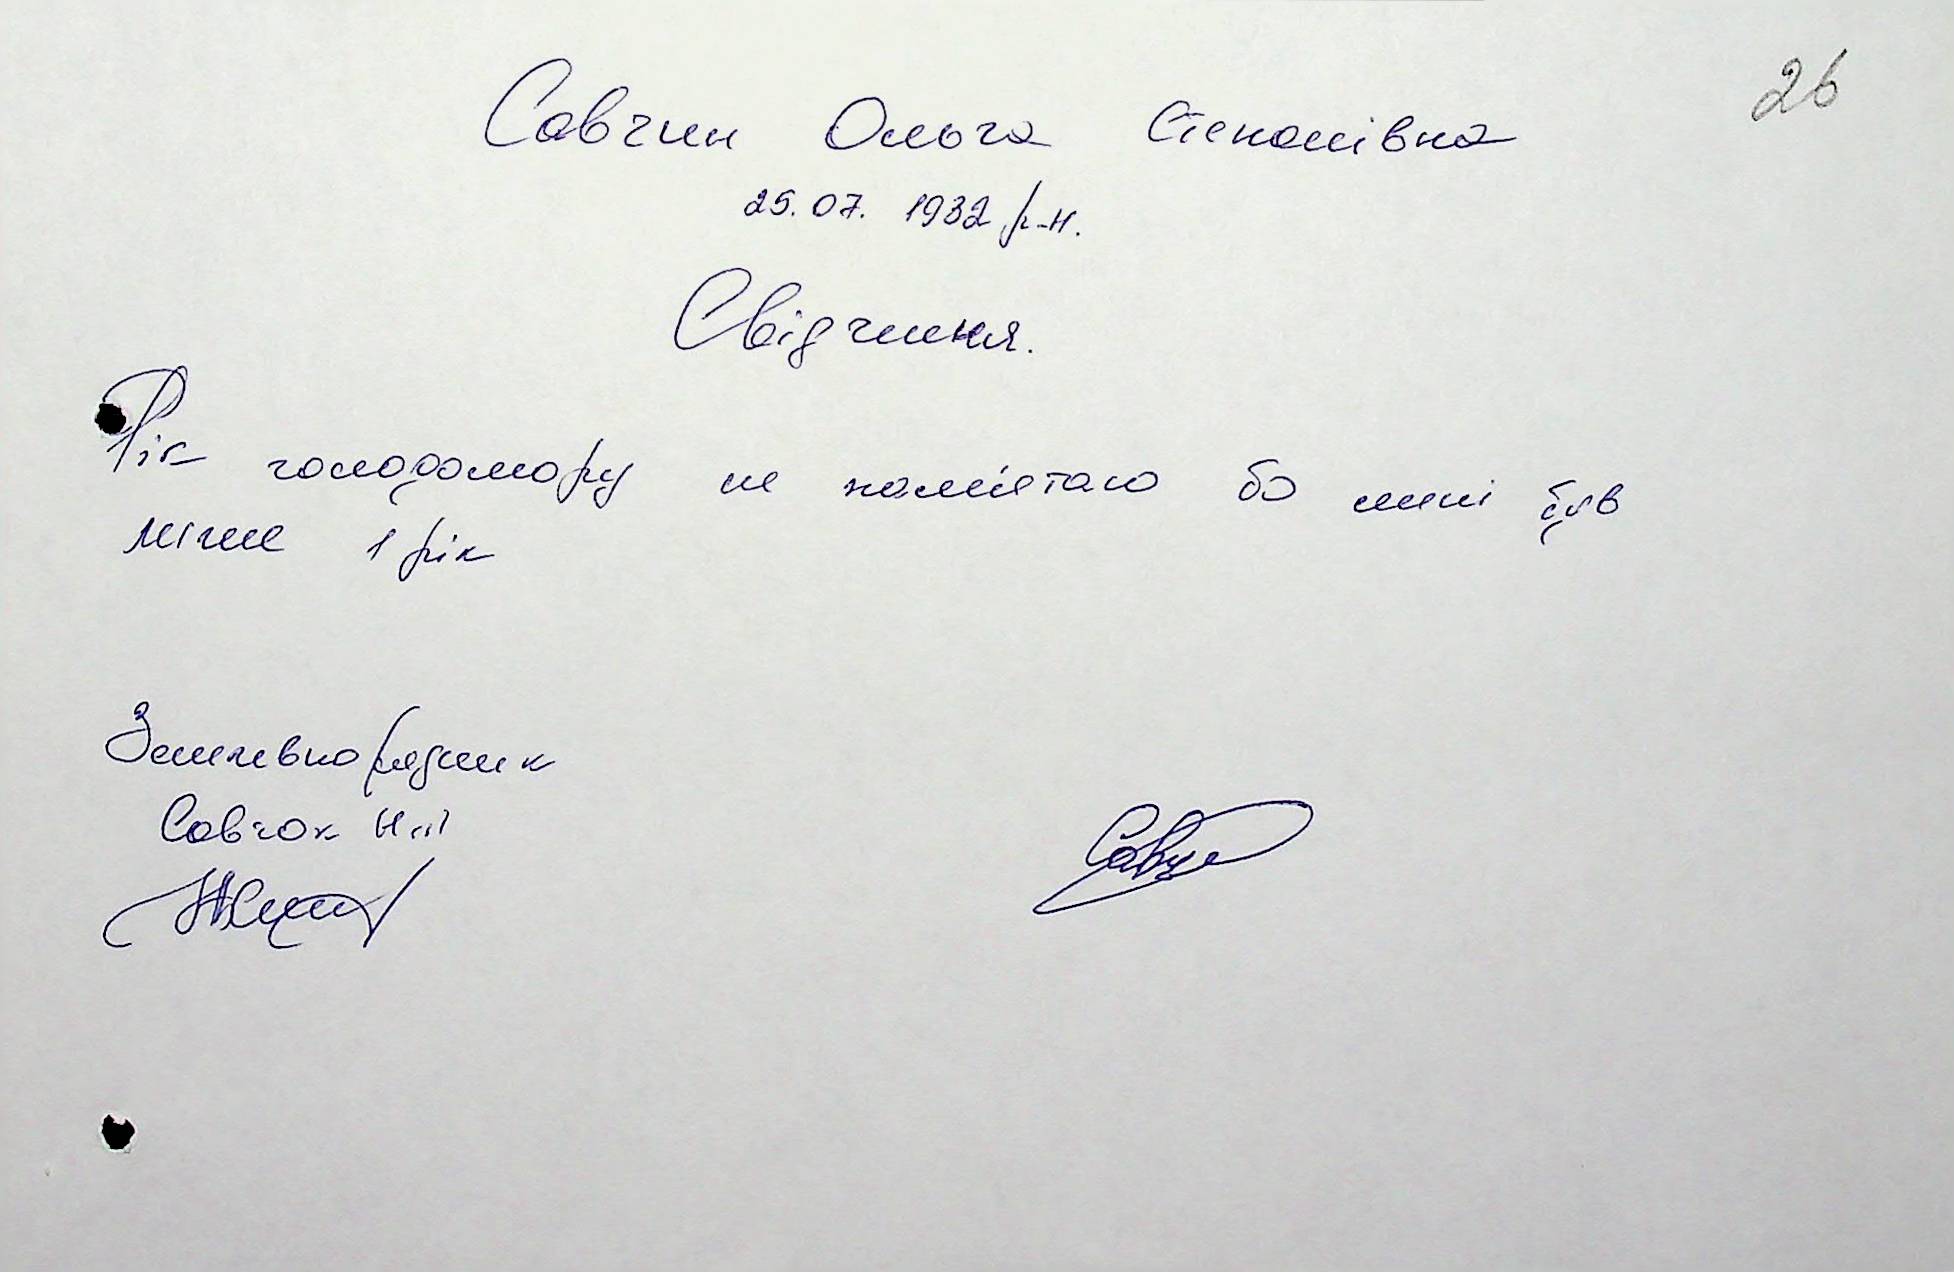 26
Савчин Ольга Степанівна
25.07. 1932 р-н.
Свідчення.
Рік голодомору не памʼятаю бо мені був
лише 1 рік
Землевпорядник
Савчок Н...